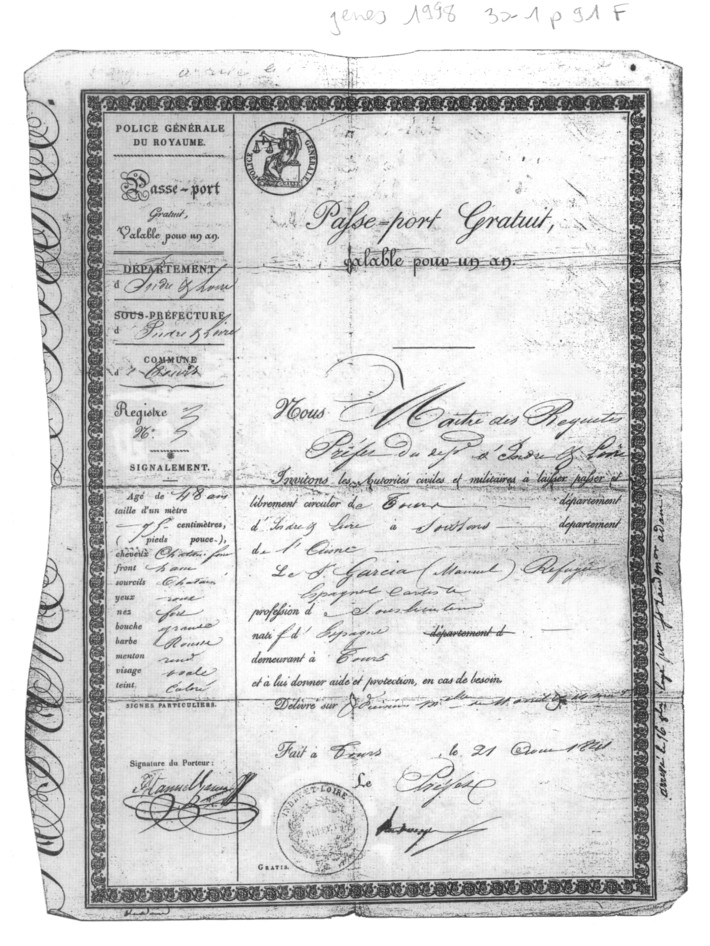 genes 1998 32-1 p 91 F
POLICE GÉNÉRALE
DU ROYAUME.
Passe-port
Gratuit,
Valable pour un an.
DÉPARTEMENT
d' Indre & Loire
SOUS-PRÉFECTURE
d' Indre & Loire
COMMUNE
de Tours
Registre 3
N.º 3
SIGNALEMENT.
Agé de 48 ans
taille d'un mètre
centimètres,
( pieds pouce.),
cheveux Chatain
front haut
sourcils Chatain
yeux roux
nez fort
bouche grande
barbe Rousse
menton rond
visage ovale
teint. Coloré
SIGNES PARTICULIERS.
Signature du Porteur :
Manuel Garcia
POLICE GÉNÉRALE
Passe-port Gratuit,
valable pour un an.
Nous Maître des Requêtes
Préfet du dépt d'Indre & Loire
Invitons les Autorités civiles et militaires à laisser passer et
librement circuler de Tours département
d'Indre & Loire à Soissons département
de l'Aisne
Le Sr Garcia (Manuel) Refugié
Espagnol Carliste
profession de Sous lieutenant
natif d'Espagne département d
demeurant à Tours
et à lui donner aide et protection, en cas de besoin.
Délivré sur
Fait à Tours , le 21 1841
Le Préfet
INDRE-ET-LOIRE
GRATIS.
arrivé le 16